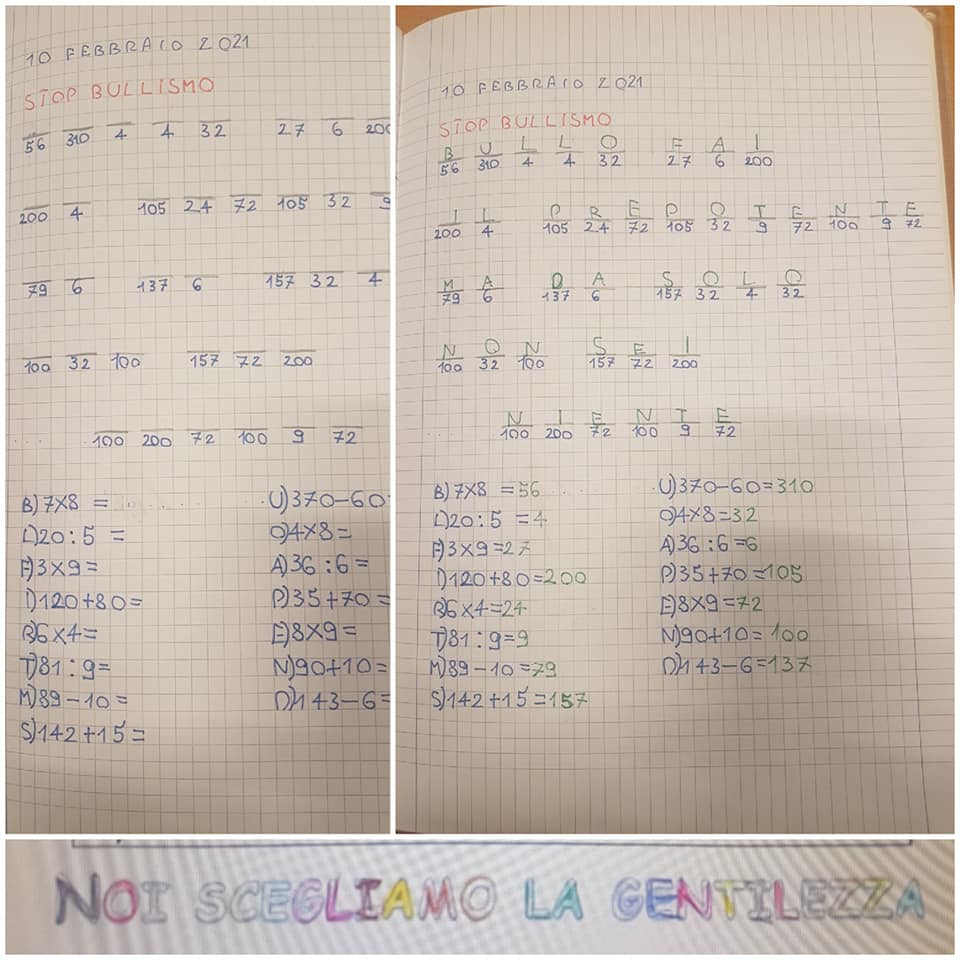 10 FEBBRAIO 2021
STOP BULLISMO
56 310 4 4 32 27 6 200
200 4 105 24 72 105 32 9
79 6 137 6 157 32 4
100 32 100 157 72 200
100 200 72 100 9 72
B) 7x8 = U) 370-60
L) 20:5 = O) 4x8=
F) 3x9= A) 36:6=
I) 120+80= P) 35+70=
R) 6x4= E) 8x9=
T) 81:9= N) 90+10=
M) 89-10= D) 143-6=
S) 142+15=
10 FEBBRAIO 2021
STOP BULLISMO
B U L L O F A I
56 310 4 4 32 27 6 200
I L P R E P O T E N T E
200 4 105 24 72 105 32 9 72 100 9 72
M A D A S O L O
79 6 137 6 157 32 4 32
N O N S E I
100 32 100 157 72 200
N I E N T E
100 200 72 100 9 72
B) 7x8 = 56 U) 370-60=310
L) 20:5 = 4 O) 4x8=32
F) 3x9=27 A) 36:6=6
I) 120+80=200 P) 35+70=105
R) 6x4=24 E) 8x9=72
T) 81:9=9 N) 90+10=100
M) 89-10=79 D) 143-6=137
S) 142+15=157
NOI SCEGLIAMO LA GENTILEZZA